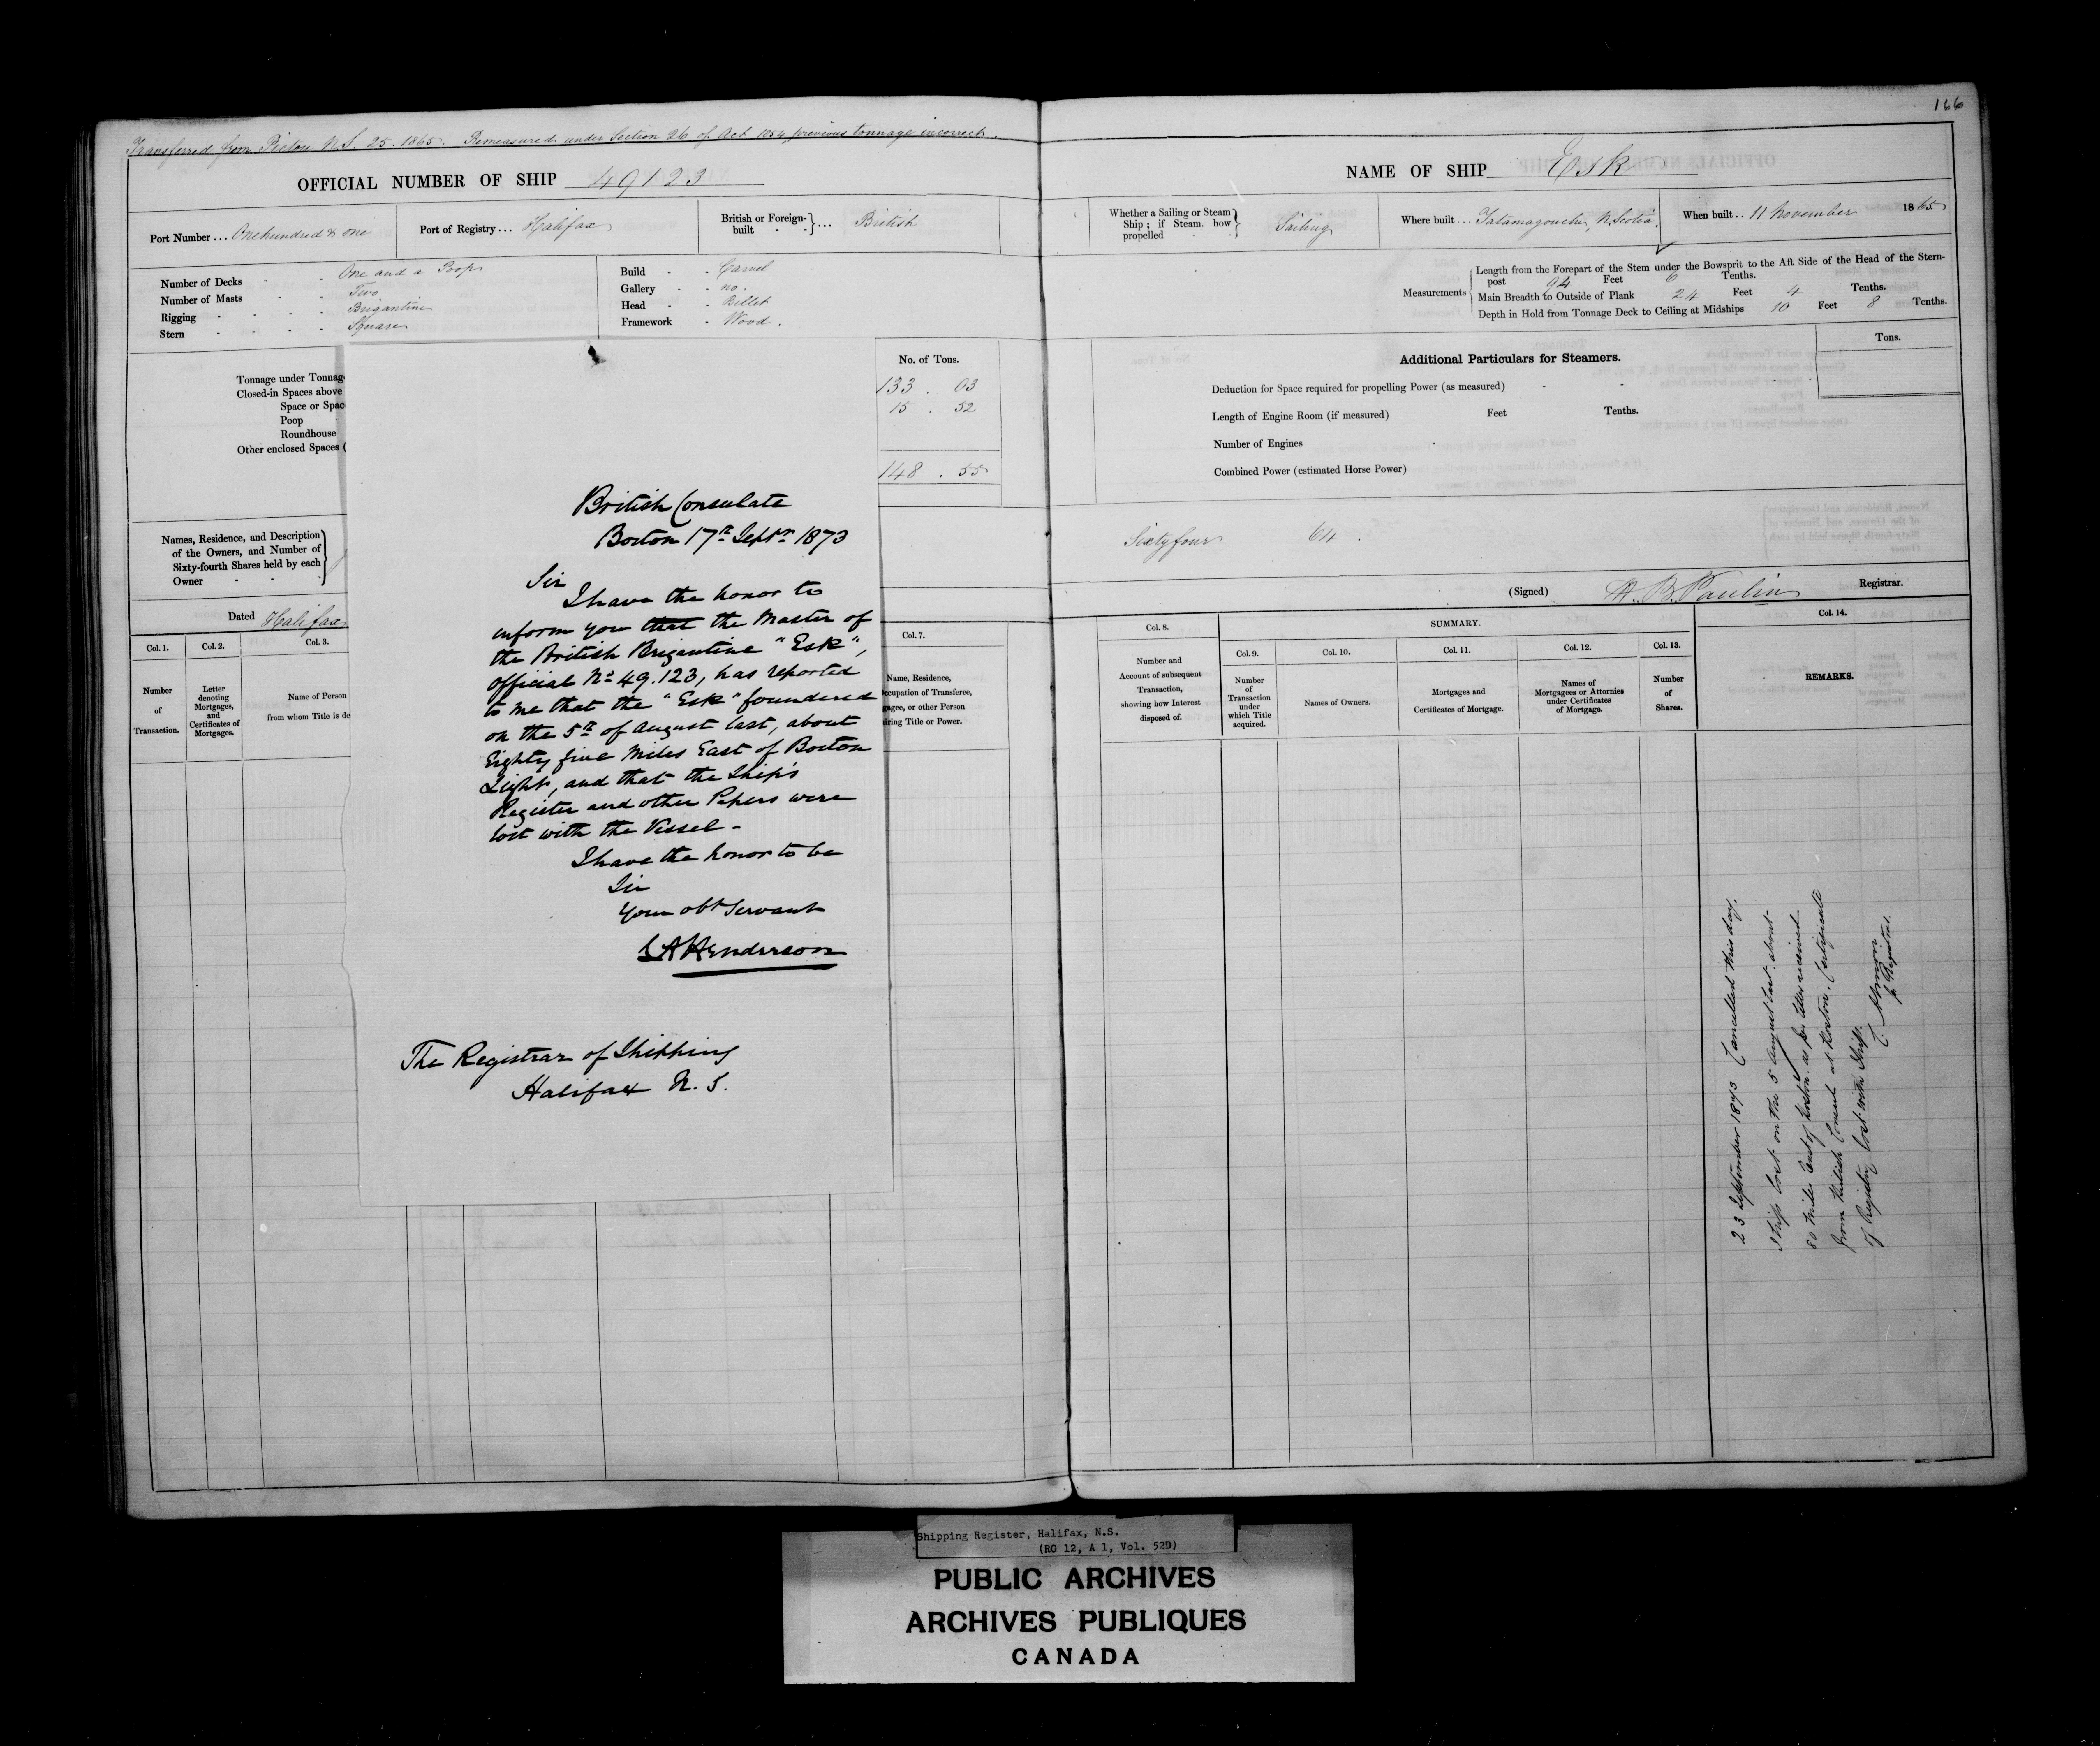 166
Transferred from Pictou N.S. 25. 1865. Remeasured under Section 26 of Act 1854, previous tonnage incorrect.
OFFICIAL NUMBER OF SHIP 49123
Port Number ... One hundred & one
Port of Registry ... Halifax
British or Foreign-built } ... British
Number of Decks - - One and a Poop
Number of Masts - - Two
Rigging - - - - Brigantine
Stern - - - - Square
Build - - Carvel
Gallery - - no.
Head - - Billet
Framework - Wood.
No. of Tons.
Tonnage under Tonnag
133 . 03
Closed-in Spaces above
Space or Spac
15 . 52
Poop
Roundhouse
Other enclosed Spaces (
148 . 55
Names, Residence, and Description
of the Owners, and Number of
Sixty-fourth Shares held by each
Owner - - -
Dated Halifax
Col. 1.
Number
of
Transaction.
Col. 2.
Letter
denoting
Mortgages,
and
Certificates of
Mortgages.
Col. 3.
Name of Person
from whom Title is de
Col. 7.
Name, Residence,
ccupation of Transferee,
gagee, or other Person
iring Title or Power.
British Consulate
Boston 17th Septr 1873
Sir
I have the honor to
inform you that the Master of
the British Brigantine "Esk",
Official No 49.123, has reported
to me that the "Esk" foundered
on the 5th of August last, about
Eighty five Miles East of Boston
Light, and that the Ship's
Register and other Papers were
lost with the Vessel -
I have the honor to be
Sir
Your obt Servant
Henderson
The Registrar of Shipping
Halifax N. S.
NAME OF SHIP Esk
Whether a Sailing or Steam
Ship; if Steam. how
propelled - -
Sailing
Where built ... Tatamagouche, N. Scotia.
When built .. 11 November 1865
Measurements
Length from the Forepart of the Stem under the Bowsprit to the Aft Side of the Head of the Stern-
post 94 Feet 6 Tenths.
Main Breadth to Outside of Plank 24 Feet 4 Tenths.
Depth in Hold from Tonnage Deck to Ceiling at Midships 10 Feet 8 Tenths.
Additional Particulars for Steamers.
Tons.
Deduction for Space required for propelling Power (as measured) - - -
Length of Engine Room (if measured) Feet Tenths.
Number of Engines
Combined Power (estimated Horse Power)
Sixty four 64.
(Signed) H. B. Paulin Registrar.
Col. 8.
Number and
Account of subsequent
Transaction,
showing how Interest
disposed of.
SUMMARY.
Col. 9.
Number
of
Transaction
under
which Title
acquired.
Col. 10.
Names of Owners.
Col. 11.
Mortgages and
Certificates of Mortgage.
Col. 12.
Names of
Mortgagees or Attornies
under Certificates
of Mortgage.
Col. 13.
Number
of
Shares.
Col. 14.
REMARKS.
23 September 1873 Cancelled this day.
Ship lost on the 5 August last about
80 Miles East of Boston as per letter received
from British Consul at Boston. Certificate
of Registry lost with Ship.
Registrar.
Shipping Register, Halifax, N.S.
(RG 12, A 1, Vol. 52D)
PUBLIC ARCHIVES
ARCHIVES PUBLIQUES
CANADA